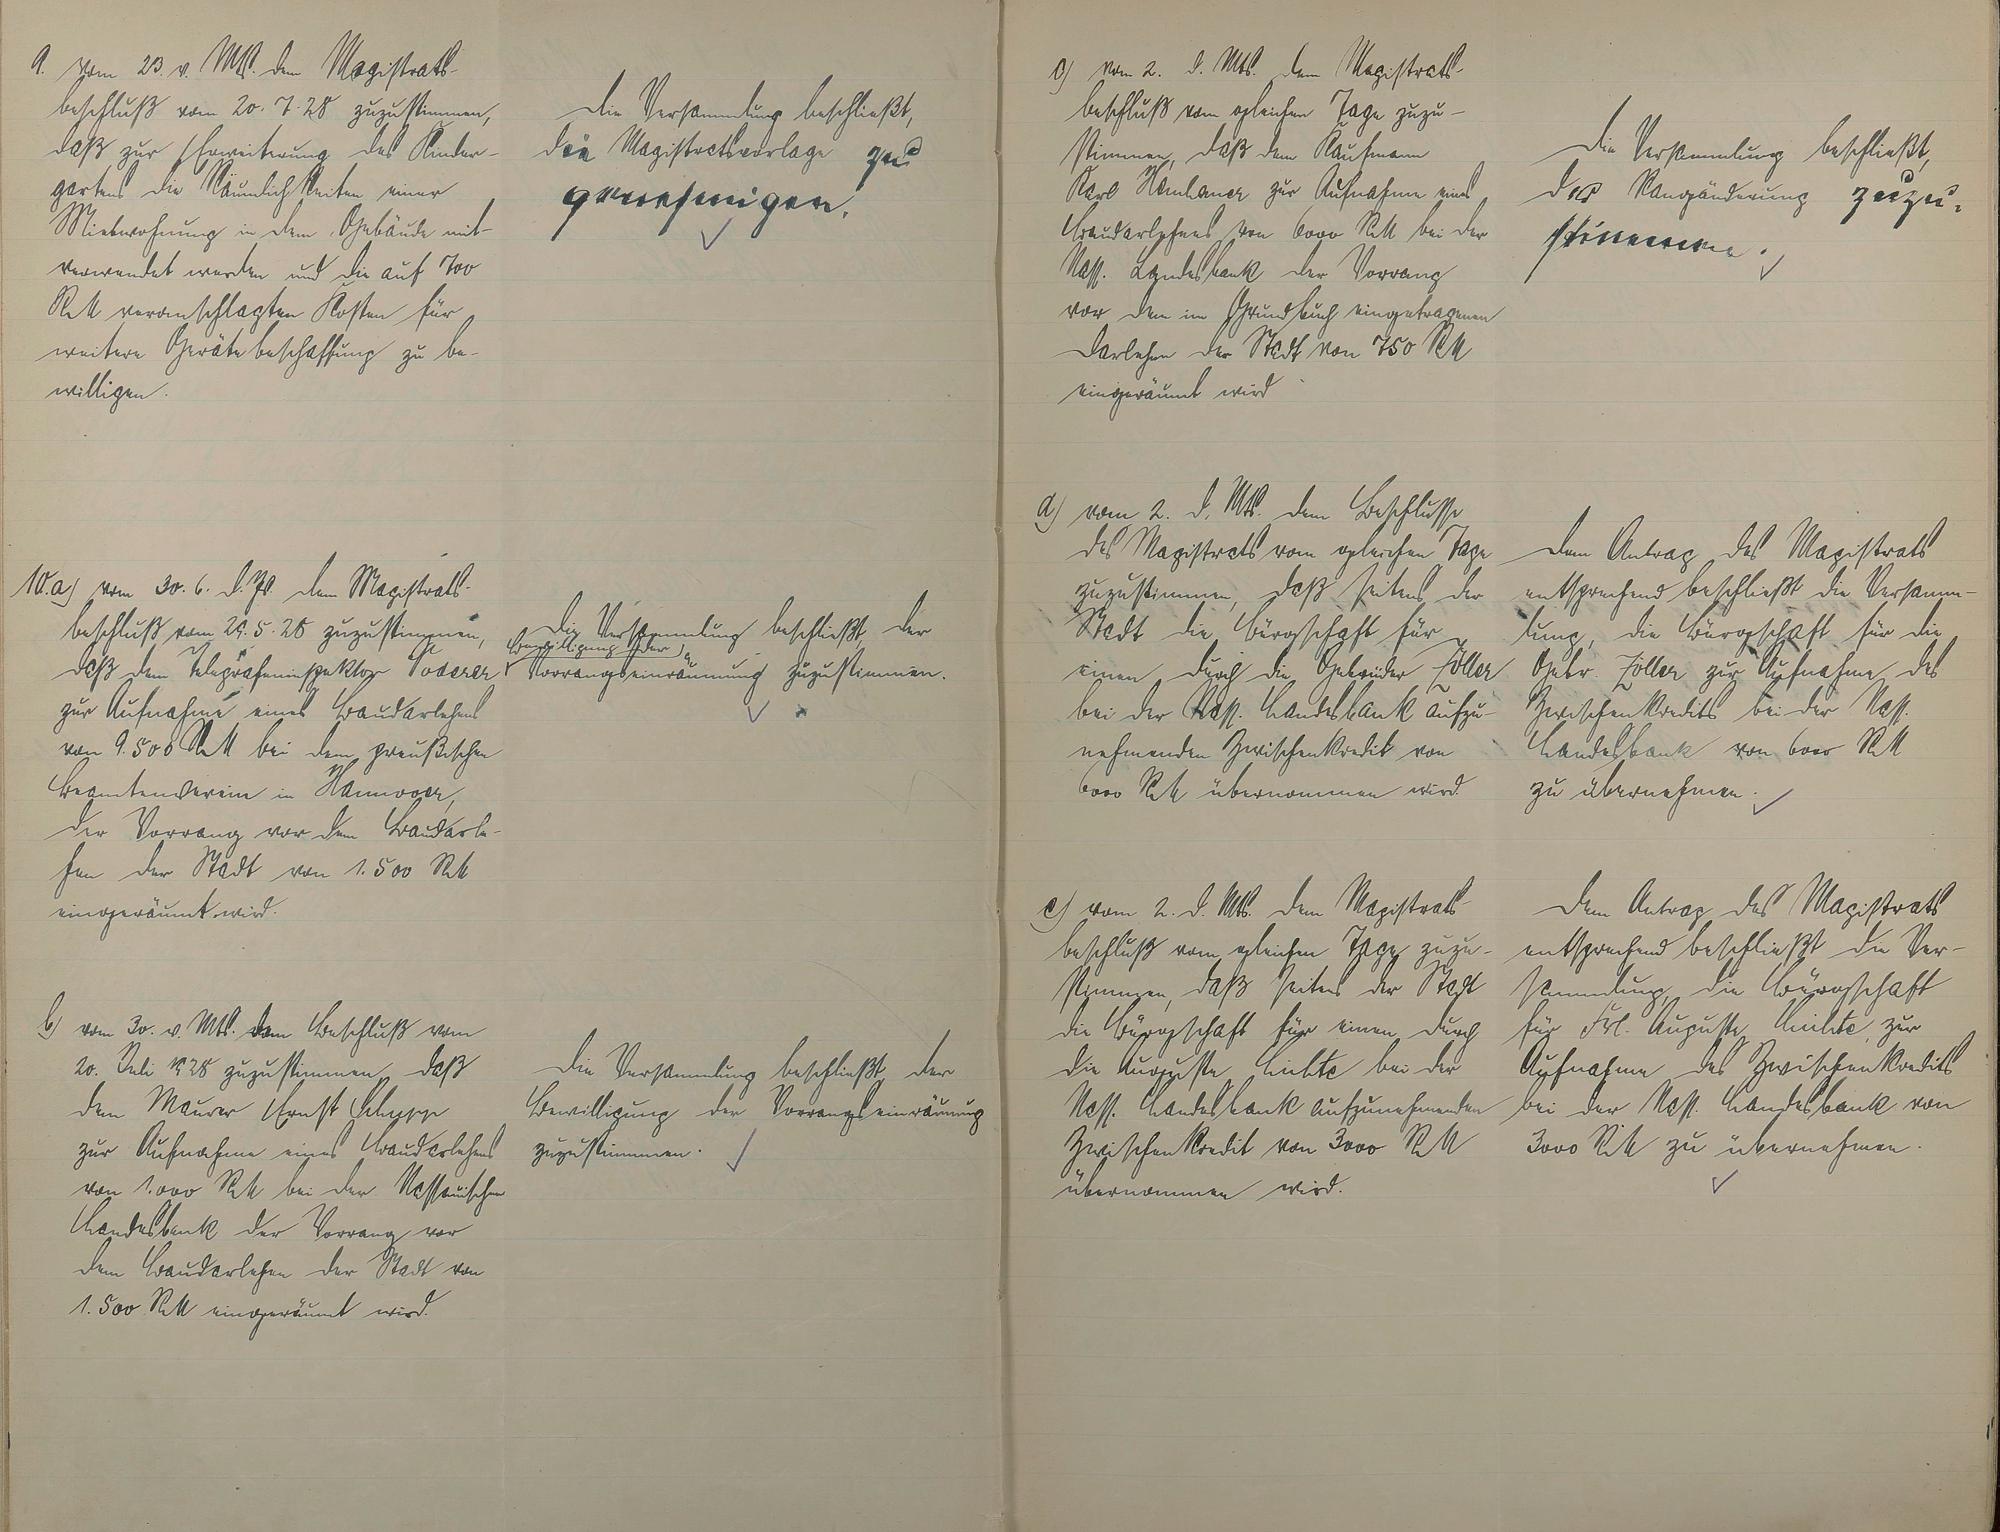 9. vom 23. v. Mts. dem Magistrats-
beschluß vom 20.7.28 zuzustimmen,
daß zur Erweiterung des Kinder-
gartens die Räumlichkeiten einer
Mietwohnung in dem Gebäude mit-
verwendet werden und die auf 700
RM veranschlagten Kosten für
weitere Gerätebeschaffung zu be-
willigen.
Die Versammlung beschließt,
die Magistratsvorlage zu
genehmigen.
10.a) vom 30.6. d. Js. dem Magistrats-
beschluß vom 29.5.28 zuzustimmen,
daß dem Telegrafeninspektor
zur Aufnahme eines Baudarlehens
von 9.500 RM bei dem preußischen
Beamtenverein in Hannover,
der Vorrang vor dem Baudarle-
hen der Stadt von 1.500 RM
eingeräumt wird.
Die Versammlung beschließt, der
Bewilligung der
Vorrangseinräumung zuzustimmen.
b) vom 30. v. Mts. dem Beschluß vom
20. Juli 1928 zuzustimmen, daß
dem Maurer Ernst Schupp
zur Aufnahme eines Baudarlehens
von 1.000 RM bei der Nassauischen
Landesbank der Vorrang vor
dem Baudarlehen der Stadt von
1.500 RM eingeräumt wird.
Die Versammlung beschließt, der
Bewilligung der Vorrangseinräumung
zuzustimmen.
c) vom 2. d. Mts. dem Magistrats-
beschluß vom gleichen Tage zuzu-
stimmen, daß dem Kaufmann
Karl zur Aufnahme eines
Baudarlehens von 6000 RM bei der
Nass. Landesbank der Vorrang
vor dem im Grundbuch eingetragenen
Darlehen der Stadt von 750 RM
eingeräumt wird
Die Versammlung beschließt,
der Rangänderung zuzu-
stimmen.
d) vom 2. d. Mts. dem Beschlusse
des Magistrats vom gleichen Tage
zuzustimmen, daß seitens der
Stadt die Bürgschaft für
einen durch die Gebrüder Zöller
bei der Nass. Landesbank aufzu-
nehmenden Zwischenkredit von
6000 RM übernommen wird.
Dem Antrag des Magistrats
entsprechend beschließt die Versamm-
lung, die Bürgschaft für die
Gebr. Zöller zur Aufnahme des
Zwischenkredits bei der Nass.
Landesbank von 6000 RM
zu übernehmen.
e) vom 2. d. Mts. dem Magistrats-
beschluß vom gleichen Tage zuzu-
stimmen, daß seitens der Stadt
die Bürgschaft für einen durch
die Auguste Lichte bei der
Nass. Landesbank aufzunehmenden
Zwischenkredit von 3000 RM
übernommen wird.
Dem Antrag des Magistrats
entsprechend beschließt die Ver-
sammlung, die Bürgschaft
für Frl. Auguste Lichte, zur
Aufnahme des Zwischenkredits
bei der Nass. Landesbank von
3000 RM zu übernehmen.